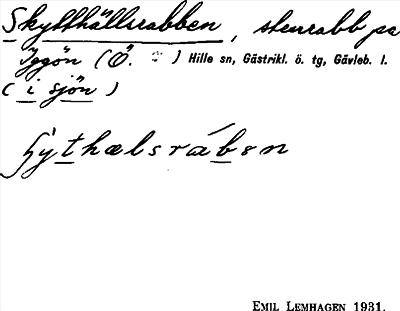 Skytthällsrabben, stenrabb på
Iggön (Ö. ) Hille sn, Gästrikl. ö. tg, Gävleb. l.
(i sjön)
ʃy̆thælsrábɘn
EMIL LEMHAGEN 1931.